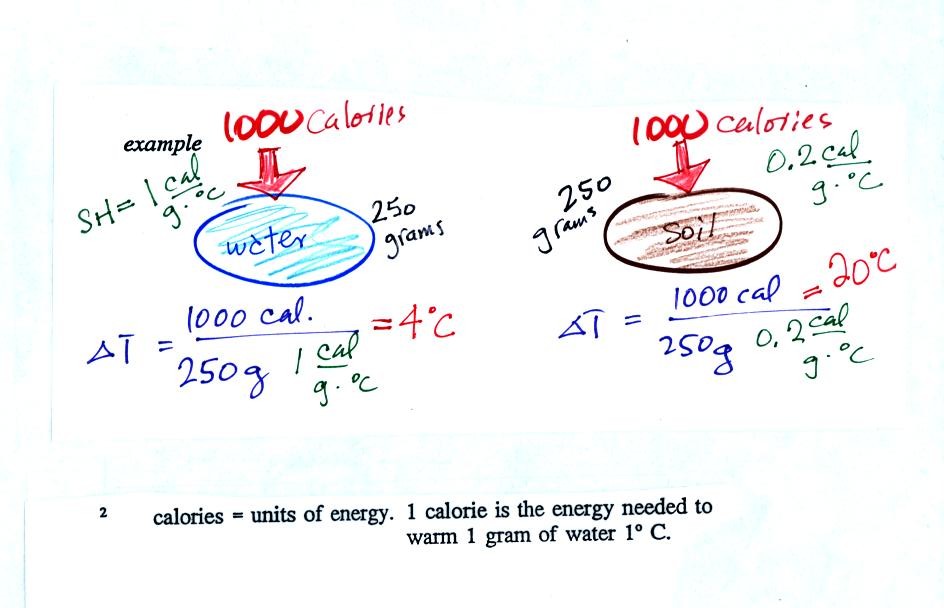 example
1000 Calories
SH = 1 cal / g·°C
water
250 grams
ΔT = 1000 cal. / 250 g 1 cal / g·°C = 4°C
1000 calories
0.2 cal / g·°C
250 grams
Soil
ΔT = 1000 cal / 250g 0.2 cal / g·°C = 20°C
2 calories = units of energy. 1 calorie is the energy needed to
warm 1 gram of water 1° C.